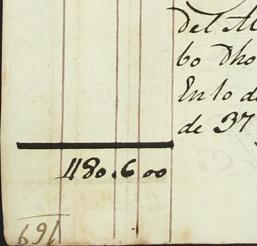 del
bo dho
En lo d
de 37
1180.6 00
169